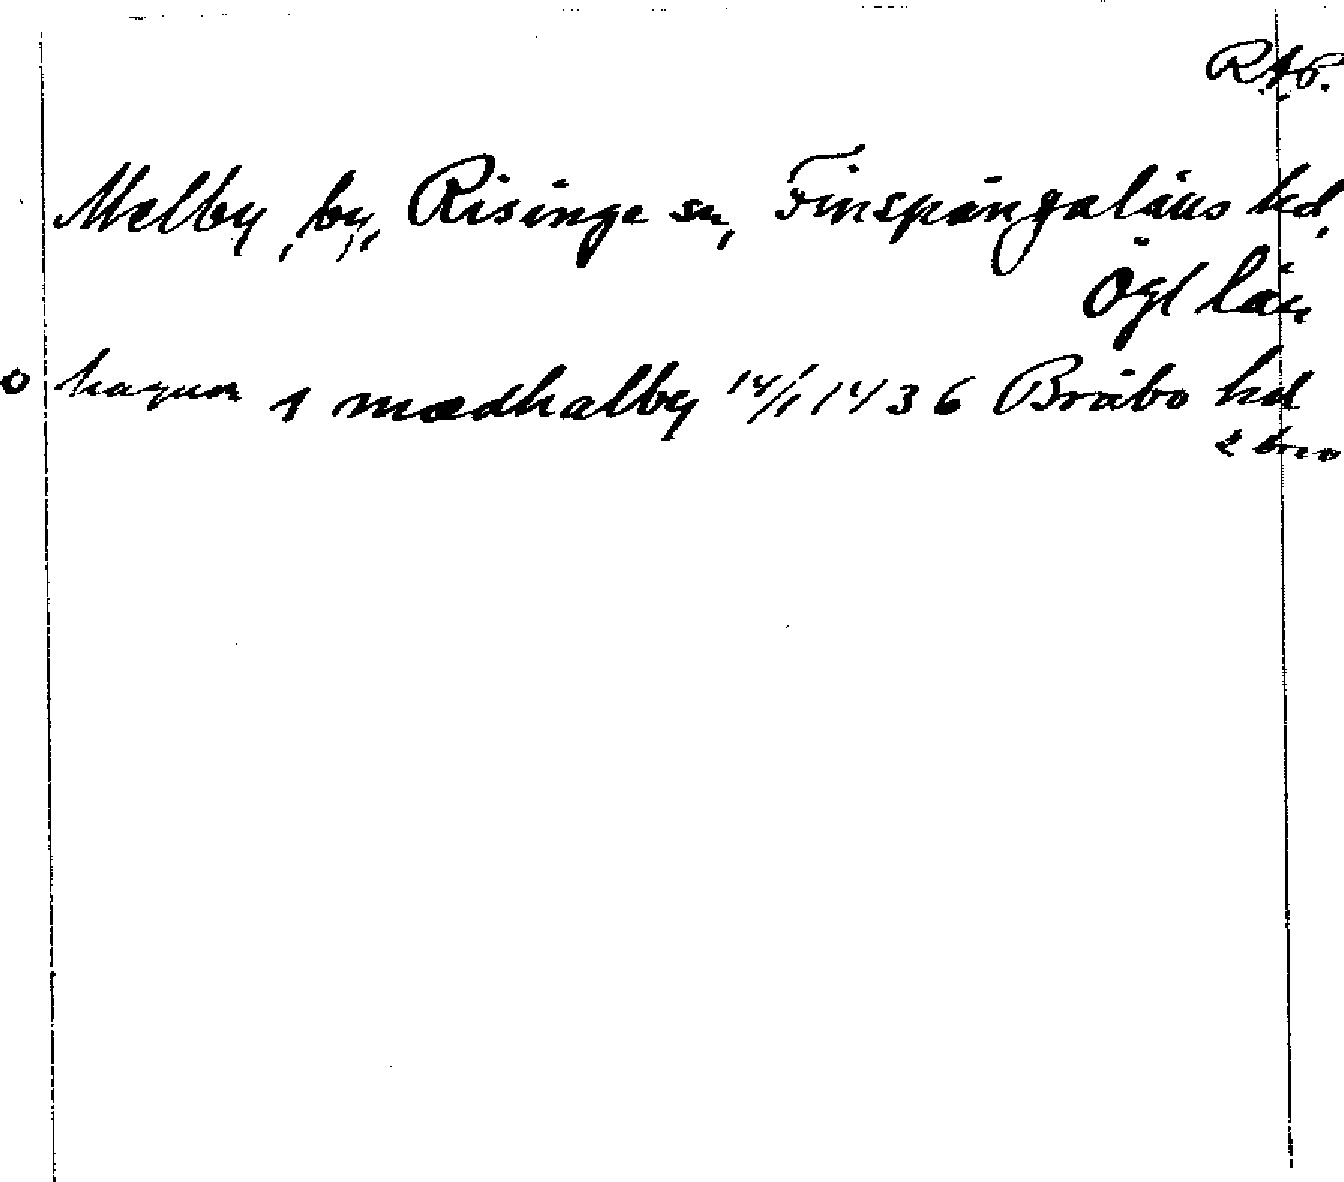 R.A.P.
Melby, by, Risinge sn, Finspångaläns hd,
Ögl län
o haquon 1 mædhalby 14/1 1436 Bråbo hd